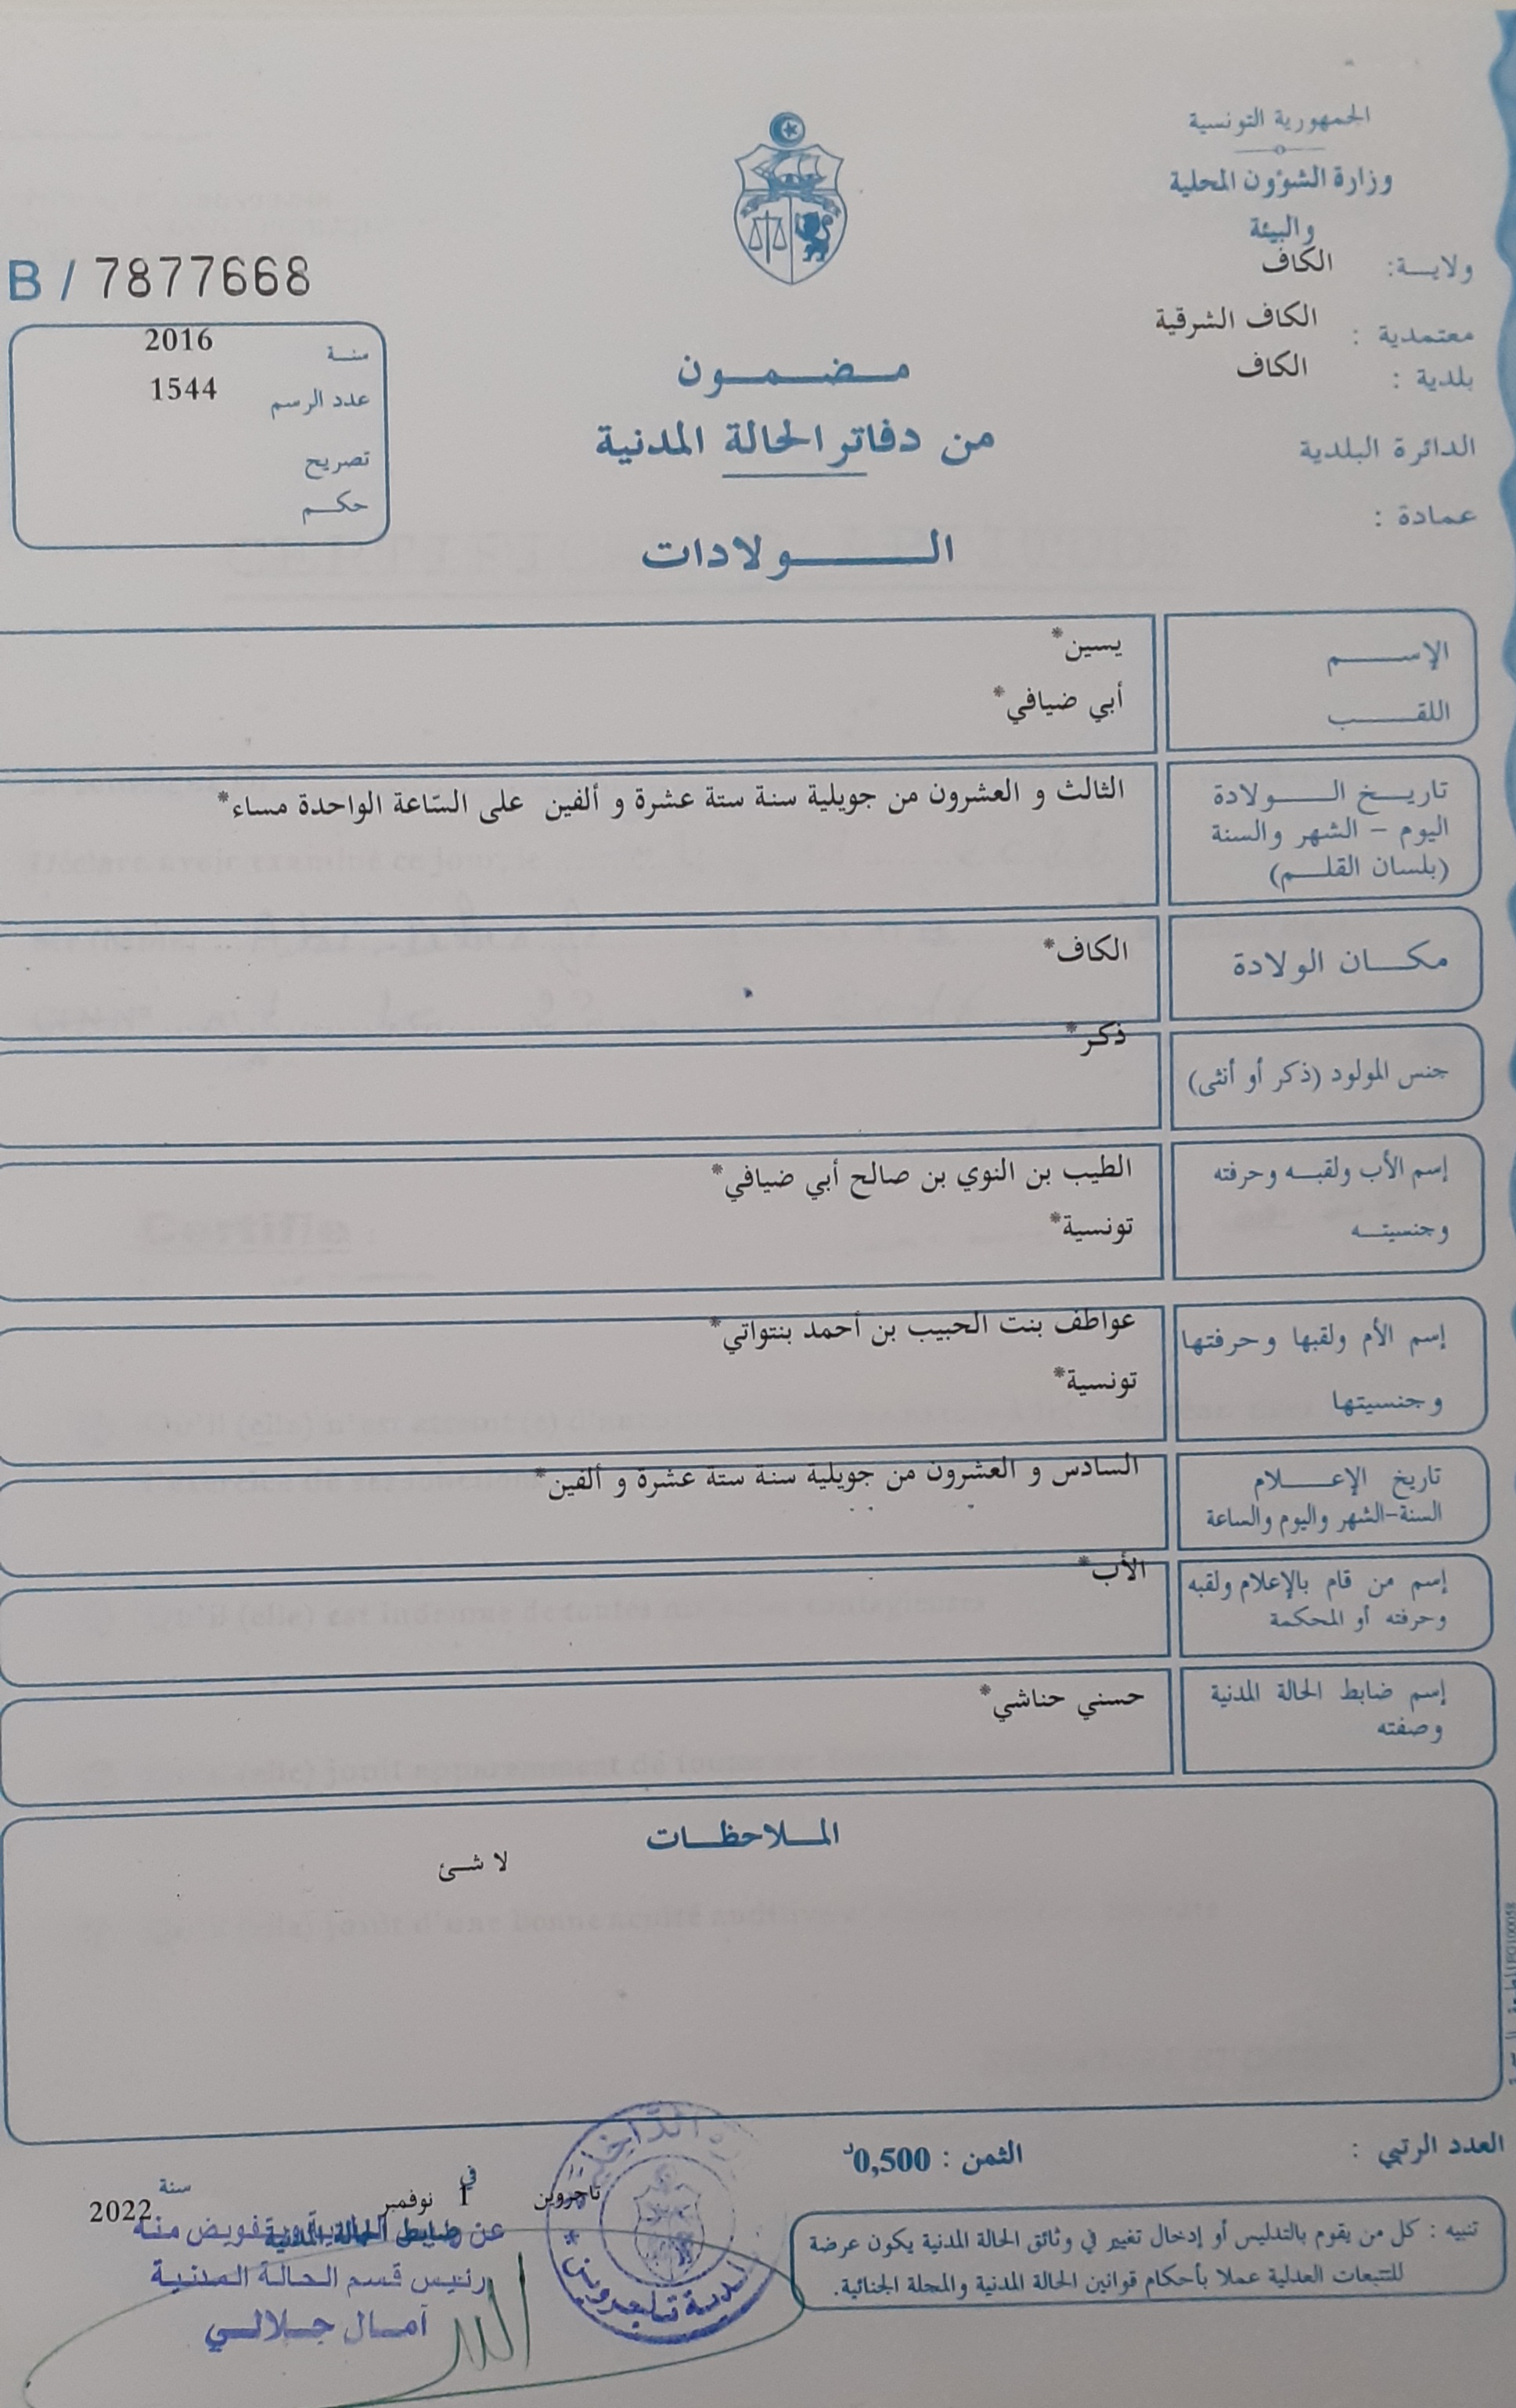 الجمهورية التونسية
وزارة الشؤون المحلية
والبيئة
ولايـــة: الكاف
معتمدية : الكاف الشرقية
بلدية : الكاف
الدائرة البلدية
عمادة :
B / 7877668
سنــة 2016
عدد الرسم 1544
تصريح
حكــم
مــضــمــون
من دفاتر الحالة المدنية
الــــولادات
الإســــم يسين*
اللقــــب أبي ضيافي*
تاريــخ الــــولادة الثالث و العشرون من جويلية سنة ستة عشرة و ألفين على السّاعة الواحدة مساء*
اليوم – الشهر والسنة
(بلسان القلــم)
مكــان الولادة الكاف*
جنس المولود (ذكر أو أنثى) ذكر*
إسم الأب ولقبــه وحرفته الطيب بن النوي بن صالح أبي ضيافي*
وجنسيتــه تونسية*
إسم الأم ولقبها وحرفتها عواطف بنت الحبيب بن أحمد بنتواتي*
وجنسيتها تونسية*
تاريخ الإعــــلام السادس و العشرون من جويلية سنة ستة عشرة و ألفين*
السنة-الشهر واليوم والساعة
إسم من قام بالإعلام ولقبه الأب*
وحرفته أو المحكمة
إسم ضابط الحالة المدنية حسني حناشي*
وصفته
الملاحظــات
لا شئ
العدد الرتبي :
الثمن : 0,500د
تاجروين في 1 نوفمبر سنة 2022
ضابط الحالة المدنية
رئيس قسم الحالة المدنية
آمــال جــلالــي
بلدية تاجروين
تنبيه : كل من يقوم بالتدليس أو إدخال تغيير في وثائق الحالة المدنية يكون عرضة
للتتبعات العدلية عملا بأحكام قوانين الحالة المدنية والمجلة الجنائية.